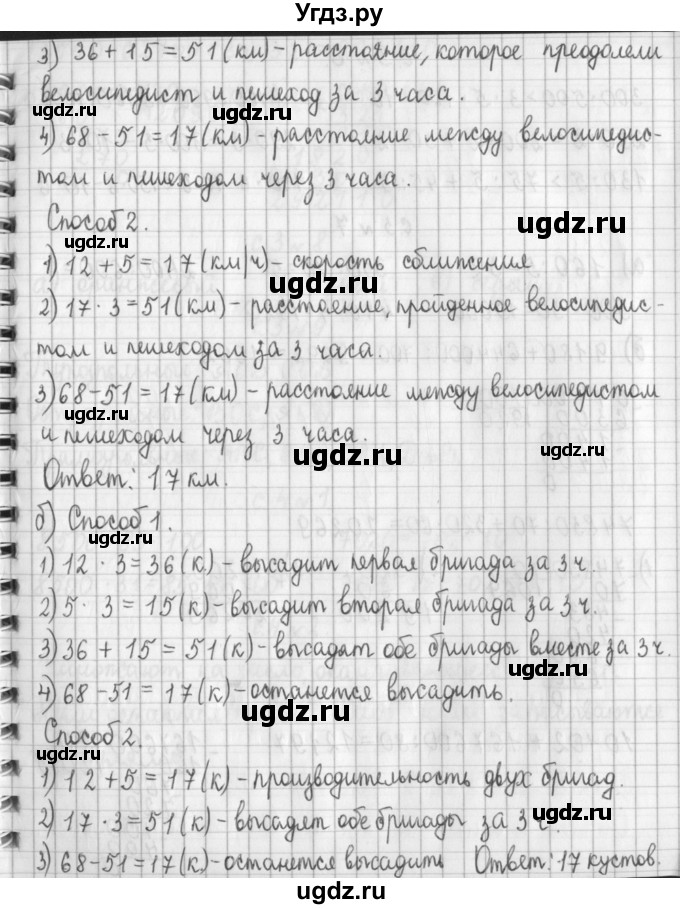 Угдз.ру
3) 36 + 15 = 51 (км) - расстояние, которое преодолели
велосипедист и пешеход за 3 часа.
ugdz.ru
ugdz.ru
ugdz.ru
4) 68 - 51 = 17 (км) - расстояние между велосипедис-
том и пешеходом через 3 часа.
Способ 2.
ugdz.ru
ugdz.ru
1) 12 + 5 = 17 (км/ч) - скорость сближения
ugdz.ru
2) 17 · 3 = 51 (км) - расстояние, пройденное велосипедис-
том и пешеходом за 3 часа.
ugdz.ru
3) 68 - 51 = 17 (км) - расстояние между велосипедистом
ugdz.ru
и пешеходом через 3 часа.
ugdz.ru
ugdz.ru
Ответ: 17 км.
б) Способ 1.
ugdz.ru
1) 12 · 3 = 36 (к.) - высадит первая бригада за 3 ч.
ugdz.ru
2) 5 · 3 = 15 (к) - высадит вторая бригада за 3 ч.
ugdz.ru
3) 36 + 15 = 51 (к) - высадят обе бригады вместе за 3 ч.
ugdz.ru
4) 68 - 51 = 17 (к) - останется высадить.
ugdz.ru
Способ 2.
ugdz.ru
1) 12 + 5 = 17 (к) - производительность двух бригад.
ugdz.ru
2) 17 · 3 = 51 (к) - высадят обе бригады за 3 ч.
ugdz.ru
ugdz.ru
3) 68 - 51 = 17 (к.) - останется высадить Ответ: 17 кустов.
ugdz.ru
ugdz.ru